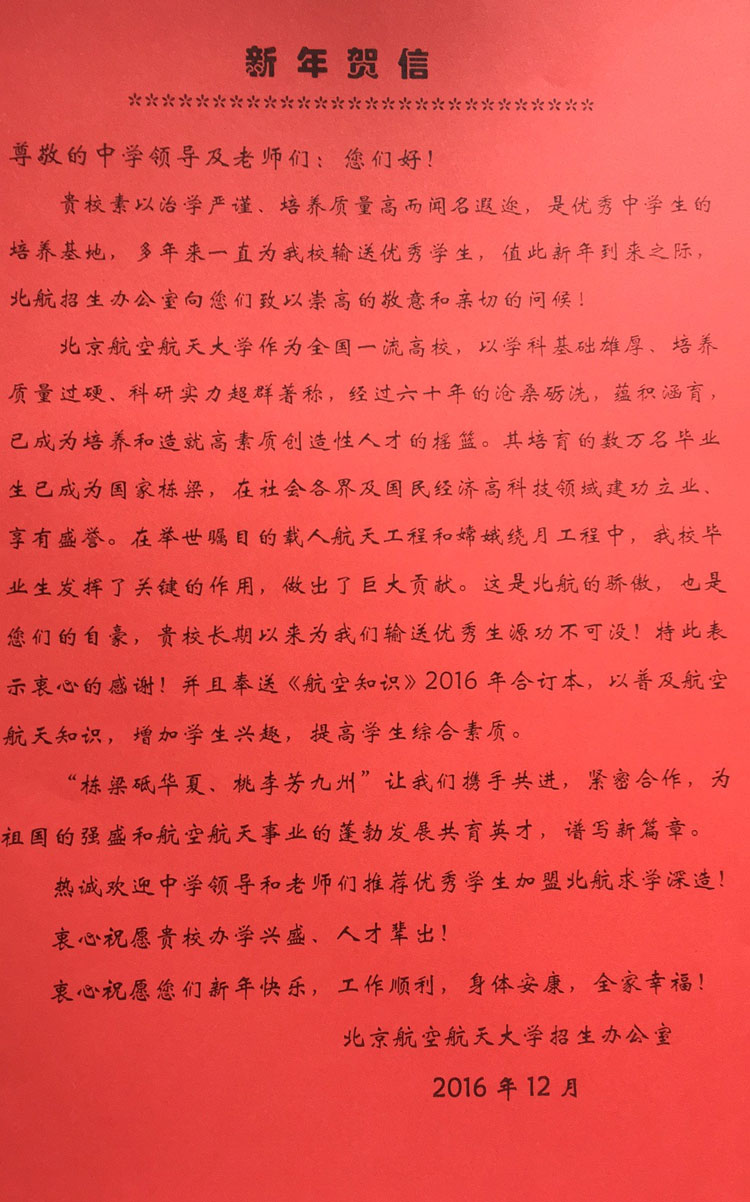 新年贺信
****************************
尊敬的中学领导及老师们：您们好！
贵校素以治学严谨、培养质量高而闻名遐迩，是优秀中学生的
培养基地，多年来一直为我校输送优秀学生，值此新年到来之际，
北航招生办公室向您们致以崇高的敬意和亲切的问候！
北京航空航天大学作为全国一流高校，以学科基础雄厚、培养
质量过硬、科研实力超群著称，经过六十年的沧桑砺洗，蕴积涵育，
已成为培养和造就高素质创造性人才的摇篮。其培育的数万名毕业
生已成为国家栋梁，在社会各界及国民经济高科技领域建功立业、
享有盛誉。在举世瞩目的载人航天工程和嫦娥绕月工程中，我校毕
业生发挥了关键的作用，做出了巨大贡献。这是北航的骄傲，也是
您们的自豪，贵校长期以来为我们输送优秀生源功不可没！特此表
示衷心的感谢！并且奉送《航空知识》2016年合订本，以普及航空
航天知识，增加学生兴趣，提高学生综合素质。
“栋梁砥华夏、桃李芳九州”让我们携手共进，紧密合作，为
祖国的强盛和航空航天事业的蓬勃发展共育英才，谱写新篇章。
热诚欢迎中学领导和老师们推荐优秀学生加盟北航求学深造！
衷心祝愿贵校办学兴盛、人才辈出！
衷心祝愿您们新年快乐，工作顺利，身体安康，全家幸福！
北京航空航天大学招生办公室
2016年12月